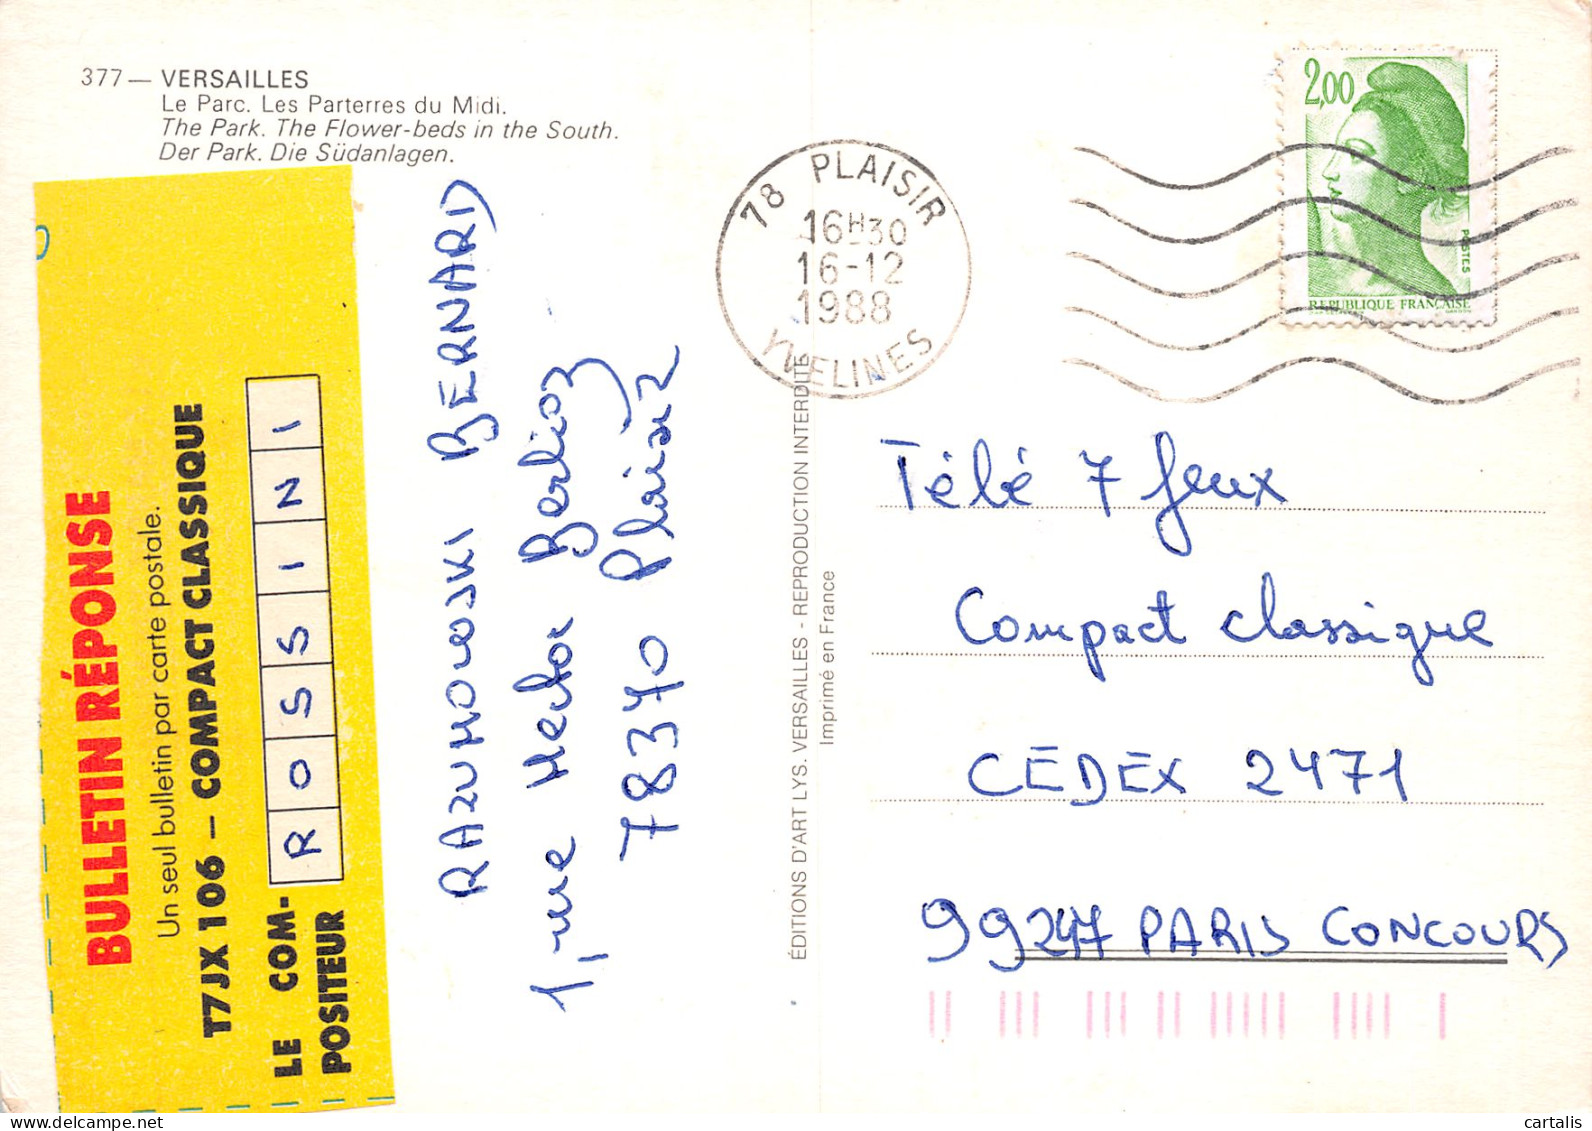 377 — VERSAILLES
Le Parc. Les Parterres du Midi.
The Park. The Flower-beds in the South.
Der Park. Die Südanlagen.
BULLETIN RÉPONSE
Un seul bulletin par carte postale.
T7JX 106 – COMPACT CLASSIQUE
LE COM-
POSITEUR
ROSSINI
RAZUMOWSKI BERNARD
1, rue Hector Berlioz
78370 Plaisir
ÉDITIONS D'ART LYS. VERSAILLES - REPRODUCTION INTERDITE
Imprimé en France
78 PLAISIR
16H30
16-12
1988
YVELINES
2,00
POSTES
REPUBLIQUE FRANÇAISE
Télé 7 Jeux
Compact classique
CEDEX 2471
99247 PARIS CONCOURS
cartalis